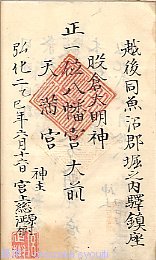 越後国魚沼郡堀之内驛鎮座
股倉大明神
正一位八幡宮大前
天満宮
神主
弘化二乙巳年六月十六日 宮